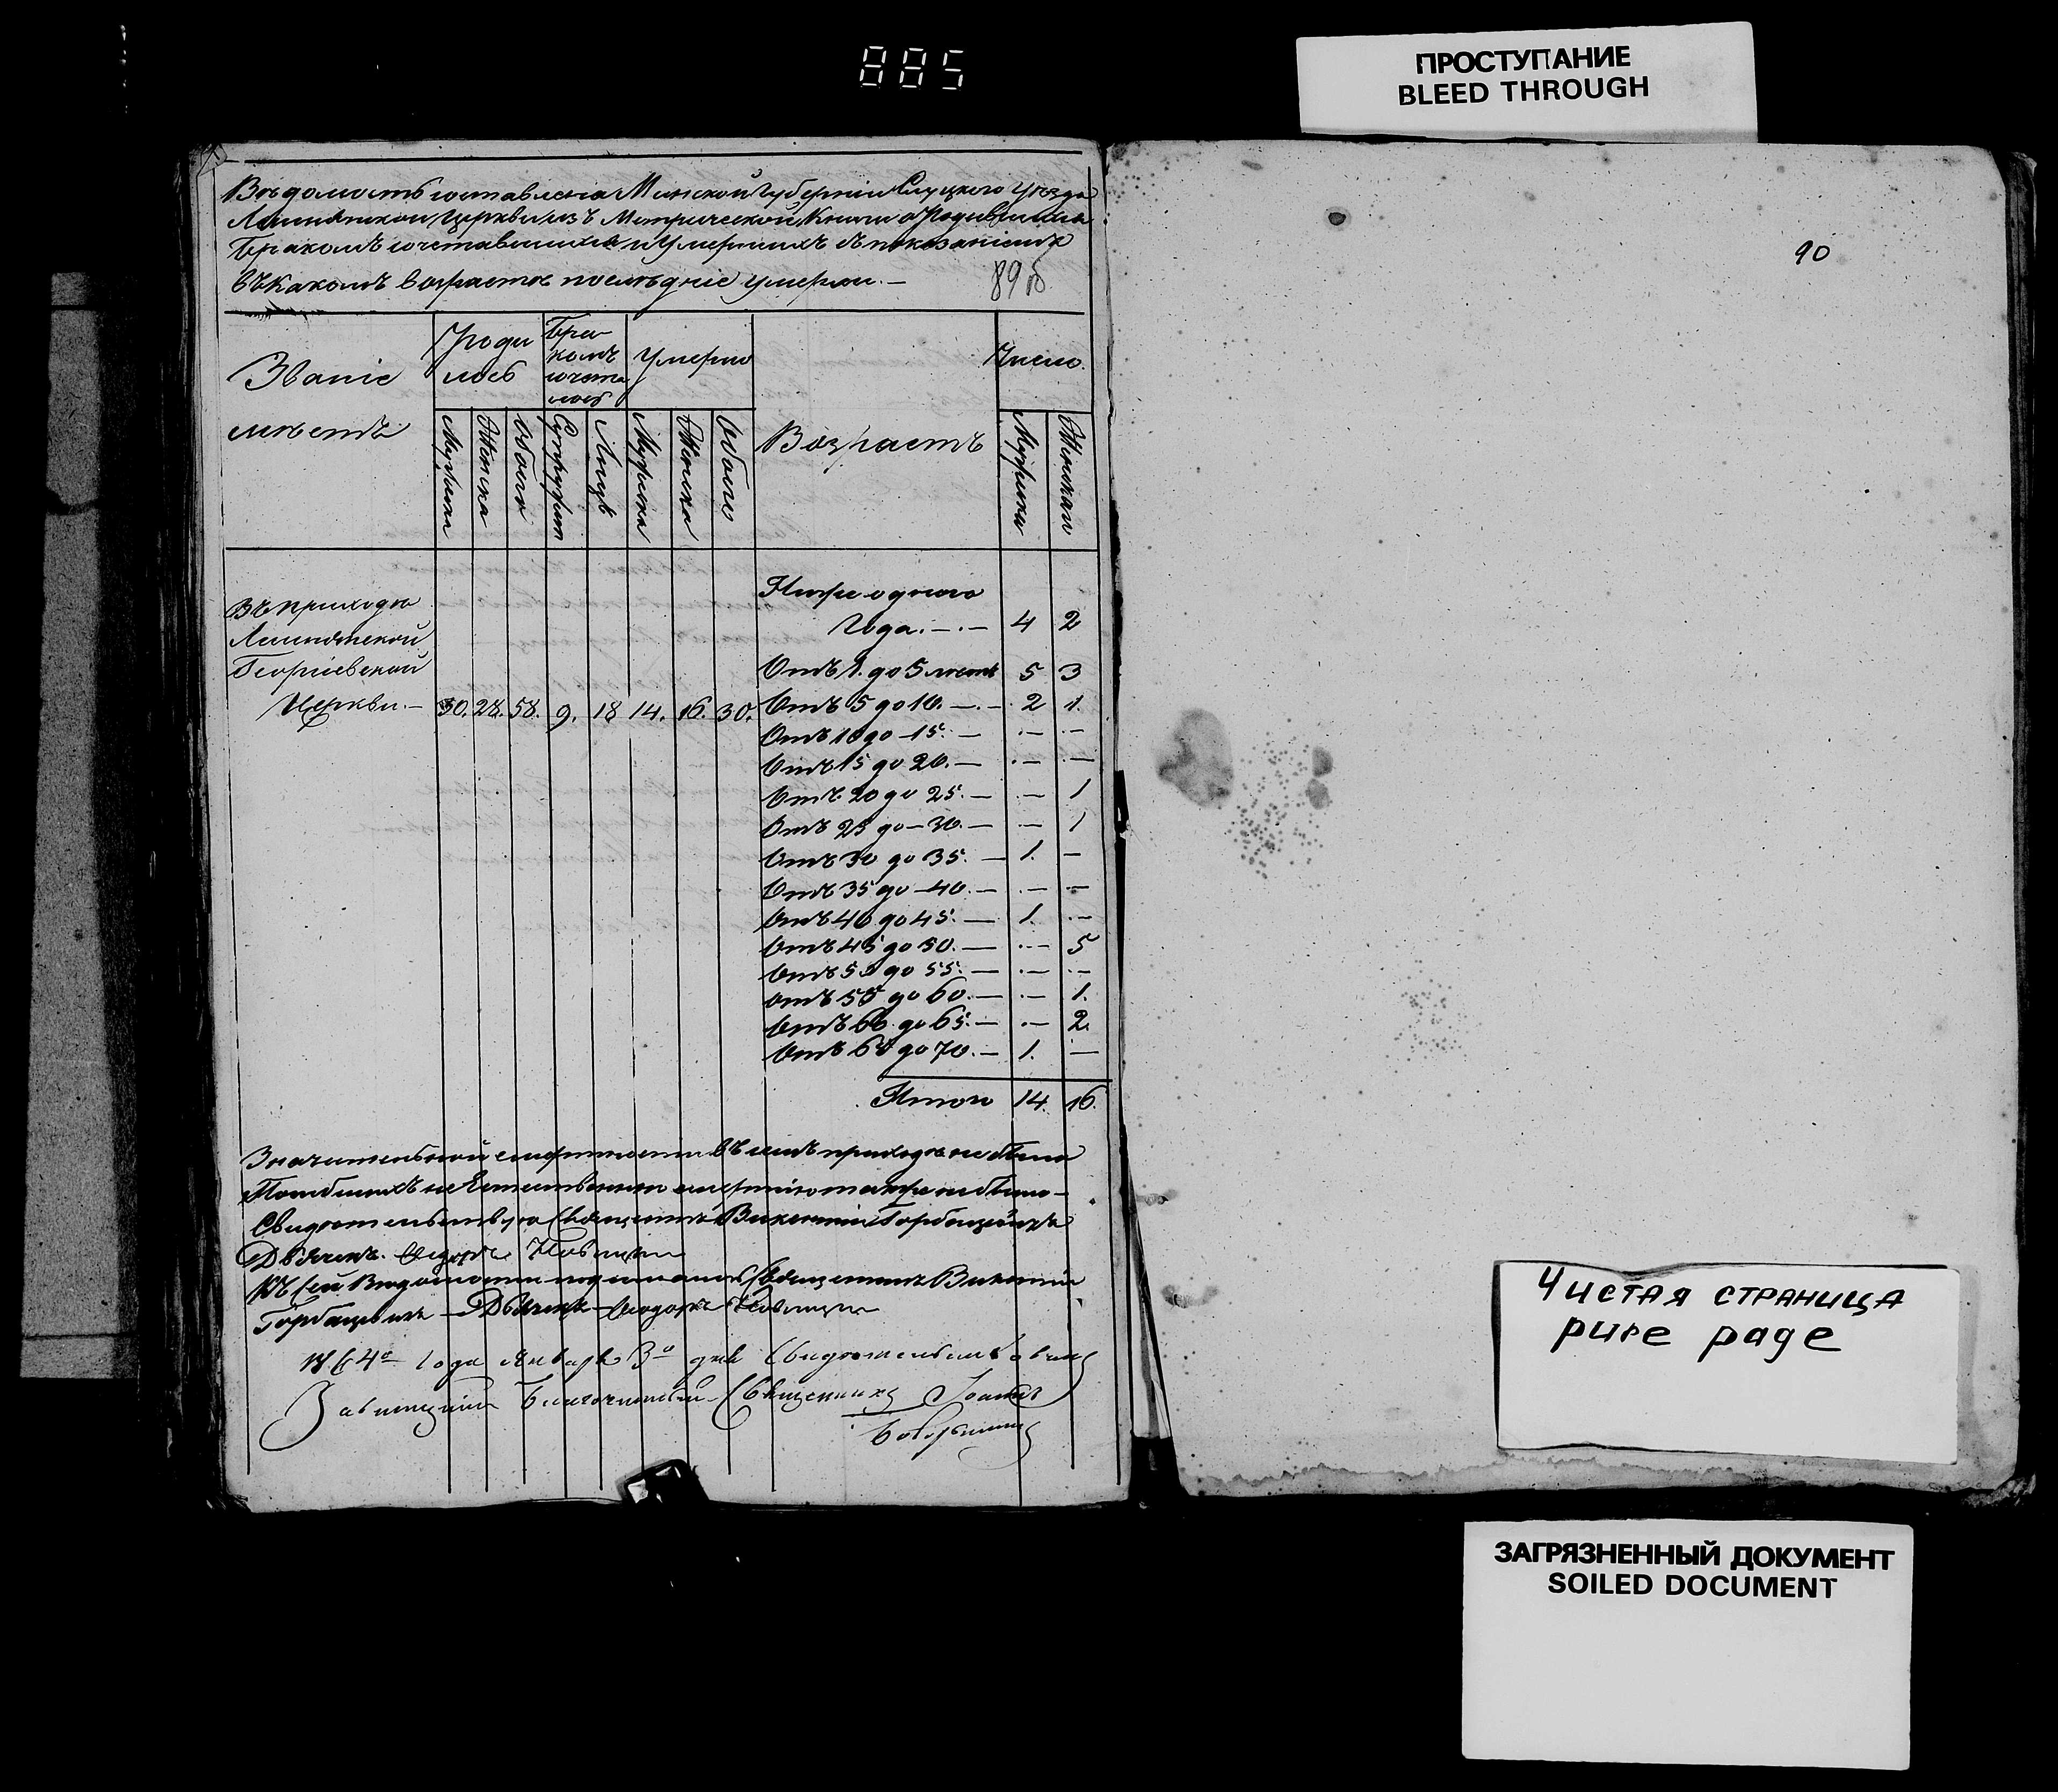 885
ПРОСТУПАНИЕ
BLEED THROUGH
Вѣдомость составлена Минской Губерніи Слуцкого Уѣзда
Церкви изъ Метрической Книги о Родившихся
Бракомъ сочетавшихся и Умершихъ съ показаніемъ
въ какомъ возрастѣ послѣдніе умерли.—
89 об
Званіе мѣстъ
Уроди лось
Бра комъ сочета лось
Умерло
Возрастъ
Число
Мужеска
Женска
Обоего
Супружест
Лицъ
Мужеска
Женска
Обоего
Мужеска
Женскаго
Въ приходѣ
Георгіевской
Церкви.— 30. 28. 58. 9. 18 14. 16. 30.
Ниже одного
Года.—.— 4 2
Отъ 1. до 5 лѣтъ 5 3
Отъ 5 до 10.—.— 2 1.
Отъ 10 до —15.— .— .—
Отъ 15 до 20.— .— .—
Отъ 20 до 25.— .— 1
Отъ 25 до —30.— .— 1
Отъ 30 до 35.— 1. —
Отъ 35 до —40.— .— .—
Отъ 40 до 45.— 1. .—
Отъ 45 до 50.— .— 5
Отъ 50 до 55.— .— .—
отъ 55 до 60.— .— 1.
Отъ 60 до 65.— .— 2.
Отъ 65 до 70.— 1. —
Итого 14. 16.
Значительной смертности въ семъ приходѣ не было
Погибшихъ не Естественною смертію также не было —
Священникъ Викентій Горбацевичъ
Дьячекъ Ѳедоръ
Къ сей Вѣдомости подписались Священникъ Викентій
Горбацевичъ — Дьячекъ Ѳеодоръ
1864го Года Января 3го дня Свидетельствовалъ
Благочинный Священникъ Іоаннъ
90
Чистая страница
pure page
ЗАГРЯЗНЕННЫЙ ДОКУМЕНТ
SOILED DOCUMENT